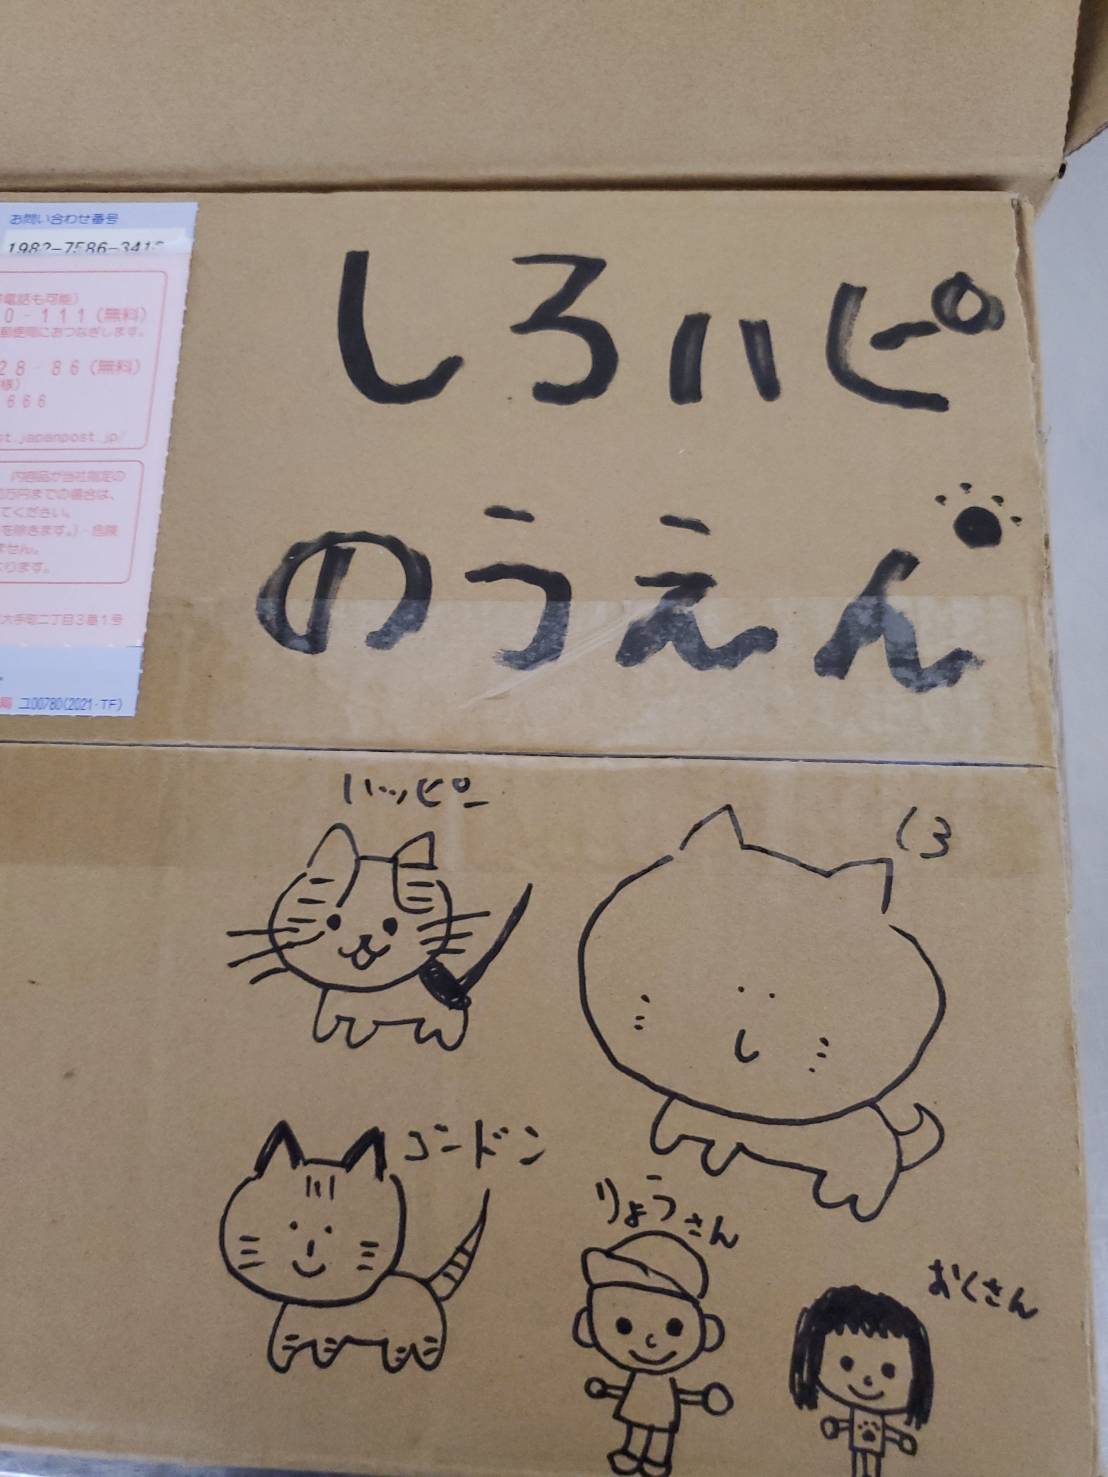 お問い合わせ番号
1982-7586-341
電話も可能)
0-111(無料)
郵便局におつなぎします。
28-86(無料)
様)
666
st.japanpost.jp/
内容品が当社指定の
万円までの場合は、
てください。
を除きます。)・危険
ません。
なります。
大手町二丁目3番1号
局 ユ00780(2021・TF)
しろハピ
のうえん
ハッピー
しろ
ゴードン
りょうさん
おくさん